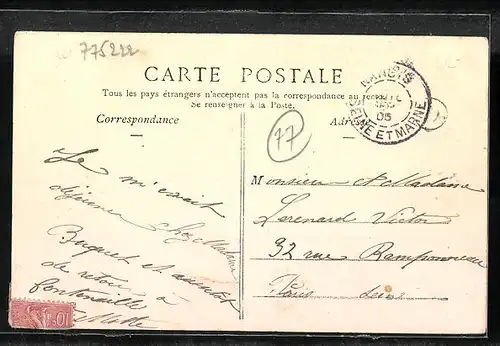 775222
CARTE POSTALE
Tous les pays étrangers n'acceptent pas la correspondance au
Se renseigner à la Poste.
Correspondance
Adresse
77
SEINE ET MARNE
05
Je
déjeuner chez Madame
Buquet et
de retour à
Fontenailles
Monsieur et Madame
Lerenard Victor
32 rue Ramponneau
Paris
10